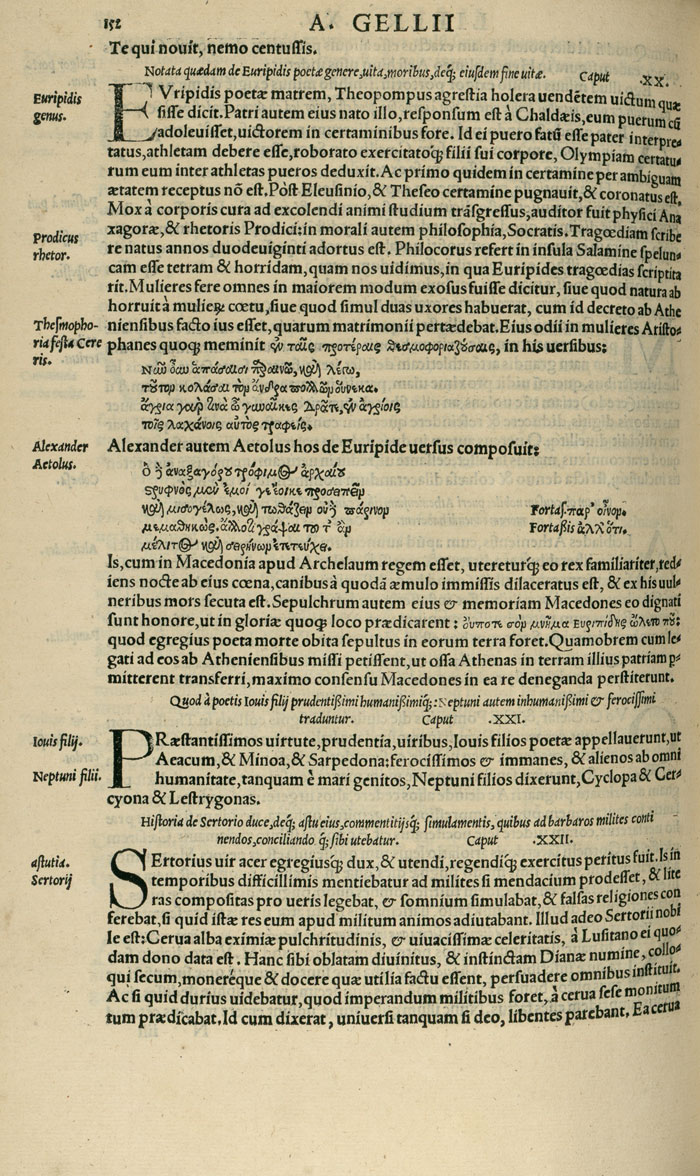 152 A. GELLII
Te qui nouit, nemo centussis.
Notata quædam de Euripidis poetæ genere, uita, moribus, deq; eiusdem fine uitæ. Caput .XX.
Euripidis genus.
EVripidis poetæ matrem, Theopompus agrestia holera uendẽtem uictum quæ
sisse dicit. Patri autem eius nato illo, responsum est à Chaldæis, eum puerum cũ
adoleuisset, uictorem in certaminibus fore. Id ei puero fatũ esse pater interpre
tatus, athletam debere esse, roborato exercitatoq; filii sui corpore, Olympiam certatu
rum eum inter athletas pueros deduxit. Ac primo quidem in certamine per ambiguam
ætatem receptus nõ est. Post Eleusinio, & Theseo certamine pugnauit, & coronatus est.
Mox à corporis cura ad excolendi animi studium trãsgressus, auditor fuit physici Ana
Prodicus rhetor.
xagoræ, & rhetoris Prodici: in morali autem philosophia, Socratis. Tragœdiam scribe
re natus annos duodeuiginti adortus est. Philocorus refert in insula Salamine spelun
cam esse tetram & horridam, quam nos uidimus, in qua Euripides tragœdias scriptita
rit. Mulieres fere omnes in maiorem modum exosus fuisse dicitur, siue quod natura ab
horruit à mulieꝝ cœtu, siue quod simul duas uxores habuerat, cum id decreto ab Athe
Thesmopho-
ria festa Cere
ris.
niensibus facto ius esset, quarum matrimonii pertædebat. Eius odii in mulieres Aristo
phanes quoq; meminit ἐν ταῖς προτέραις θεσμοφοριαζούσαις, in his uersibus:
Νῦν οὖν ἁπάσαισι παραινῶ, καὶ λέγω,
τοῦτον κολάσαι τὸν ἄνδρα πολλῶν οὕνεκα.
ἄγρια γὰρ ἡμᾶς ὦ γυναῖκες δρᾶτε, ἐν ἀγρίοις
τοῖς λαχάνοις αὐτὸς τραφείς.
Alexander Aetolus.
Alexander autem Aetolus hos de Euripide uersus composuit:
ὁ δ' ἀναξαγόρου τρόφιμος ἀρχαίου
στρυφνὸς μὲν ἐμοὶ γε ἔοικε προσειπεῖν
καὶ μισογέλως, καὶ τωθάζειν οὐδὲ πάρινον Fortas. παρ' οἶνον.
μεμαθηκώς. ἀλλ' ὅτι γράψαι τοῦτ' ἂν Fortaßis ἀλλ' ὅτι.
μέλιτος καὶ σειρήνων ἐπετεύχει.
Is, cum in Macedonia apud Archelaum regem esset, utereturq; eo rex familiariter, red-
iens nocte ab eius cœna, canibus à quodã æmulo immissis dilaceratus est, & ex his uul-
neribus mors secuta est. Sepulchrum autem eius & memoriam Macedones eo dignati
sunt honore, ut in gloriæ quoq; loco prædicarent: οὔποτε σὸν μνῆμα Εὐριπίδης ὤλετο που:
quod egregius poeta morte obita sepultus in eorum terra foret. Quamobrem cum le-
gati ad eos ab Atheniensibus missi petissent, ut ossa Athenas in terram illius patriam p-
mitterent transferri, maximo consensu Macedones in ea re deneganda perstiterunt.
Quod à poetis Iouis filij prudentißimi humanißimiq;: Neptuni autem inhumanißimi & ferocissimi
traduntur. Caput .XXI.
Iouis filij.
PRæstantissimos uirtute, prudentia, uiribus, Iouis filios poetæ appellauerunt, ut
Aeacum, & Minoa, & Sarpedona: ferocissimos & immanes, & alienos ab omni
Neptuni filii.
humanitate, tanquam è mari genitos, Neptuni filios dixerunt, Cyclopa & Cer-
cyona & Lestrygonas.
Historia de Sertorio duce, deq; astu eius, commentitijsq; simulamentis, quibus ad barbaros milites conti
nendos, conciliando q; sibi utebatur. Caput .XXII.
astutia. Sertorij
SErtorius uir acer egregiusq; dux, & utendi, regendiq; exercitus peritus fuit. Is in
temporibus difficillimis mentiebatur ad milites si mendacium prodesset, & lite
ras compositas pro ueris legebat, & somnium simulabat, & falsas religiones con
ferebat, si quid istæ res eum apud militum animos adiutabant. Illud adeo Sertorii nobi
le est: Cerua alba eximiæ pulchritudinis, & uiuacissimæ celeritatis, à Lusitano ei quo-
dam dono data est. Hanc sibi oblatam diuinitus, & instinctam Dianæ numine, collo-
qui secum, moneréque & docere quæ utilia factu essent, persuadere omnibus instituit.
Ac si quid durius uidebatur, quod imperandum militibus foret, à cerua sese monitum
tum prædicabat. Id cum dixerat, uniuersi tanquam si deo, libentes parebant. Ea cerua